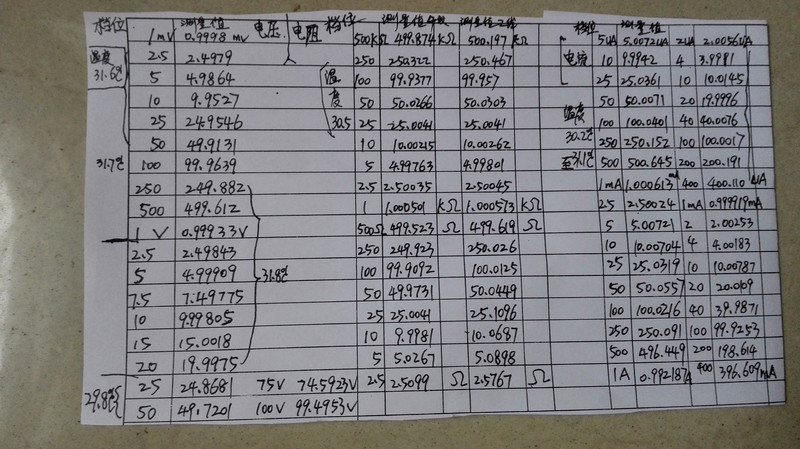 档位 测量值 电压 电阻 档位 测量值四线 测量值二线 档位 测量值
1mV 0.9998 mV 500KΩ 499.874KΩ 500.197 KΩ 电流 5uA 5.00724uA 2uA 2.00564uA
温度 31.6℃ 2.5 2.4979 250 250.322 250.467 10 9.9942 4 3.9981
5 4.9864 温度 30.5 100 99.9377 99.957 25 25.0361 10 10.0145
10 9.9527 50 50.0266 50.0303 50 50.0071 20 19.9996
25 24.9546 25 25.0041 25.0041 温度 100 100.0401 40 40.0076
50 49.9131 10 10.00215 10.00262 30.2℃ 250 250.152 100 100.0017
31.7℃ 100 99.9639 5 4.99763 4.99801 至31.1℃ 500 500.645 200 200.191
250 249.882 2.5 2.50035 2.50045 1mA 1.000613mA 400 400.110uA
500 499.612 1 1.000501 KΩ 1.000573 KΩ 25 2.50024 1mA 0.999919mA
1 V 0.99933V 500Ω 499.523 Ω 499.619 Ω 5 5.00721 2 2.00253
2.5 2.49843 250 249.923 250.026 10 10.00704 4 4.00183
5 4.99909 31.8℃ 100 99.9092 100.0125 25 25.0319 10 10.00787
7.5 7.49775 50 49.9731 50.0449 50 50.0557 20 20.0109
10 9.99805 25 25.0041 25.1096 100 100.0216 40 39.9871
15 15.0018 10 9.9981 10.0687 250 250.091 100 99.9253
20 19.9975 5 5.0267 5.0898 500 496.449 200 198.614
29.8℃ 25 24.8681 75V 74.5923V 2.5 2.5099 Ω 2.5767 Ω 1A 0.992187A 400 396.609mA
50 49.7201 100V 99.4953V